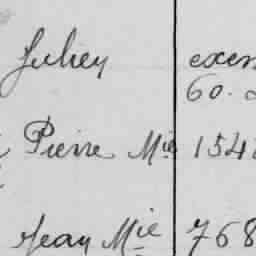 Julien exem
60.
Pierre Mie 154
Jean Mie 768